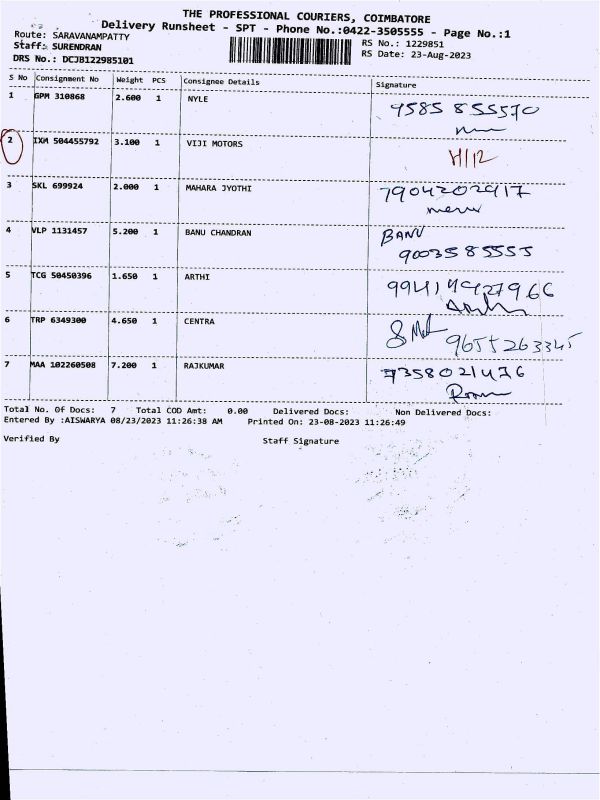 THE PROFESSIONAL COURIERS, COIMBATORE
Delivery Runsheet - SPT - Phone No.:0422-3505555 - Page No.:1
Route: SARAVANAMPATTY
RS No.: 1229851
Staff: SURENDRAN
RS Date: 23-Aug-2023
DRS No.: DCJB122985101
S No Consignment No Weight PCS Consignee Details Signature
1 GPM 310868 2.600 1 NYLE 9585 855570
2 IXM 504455792 3.100 1 VIJI MOTORS H/12
3 SKL 699924 2.000 1 MAHARA JYOTHI 7904202917
4 VLP 1131457 5.200 1 BANU CHANDRAN BANU
9003585555
5 TCG 50450396 1.650 1 ARTHI
6 TRP 6349300 4.650 1 CENTRA 9655263345
7 MAA 102260508 7.200 1 RAJKUMAR 7358021476
Total No. Of Docs: 7 Total COD Amt: 0.00 Delivered Docs: Non Delivered Docs:
Entered By :AISWARYA 08/23/2023 11:26:38 AM Printed On: 23-08-2023 11:26:49
Verified By Staff Signature